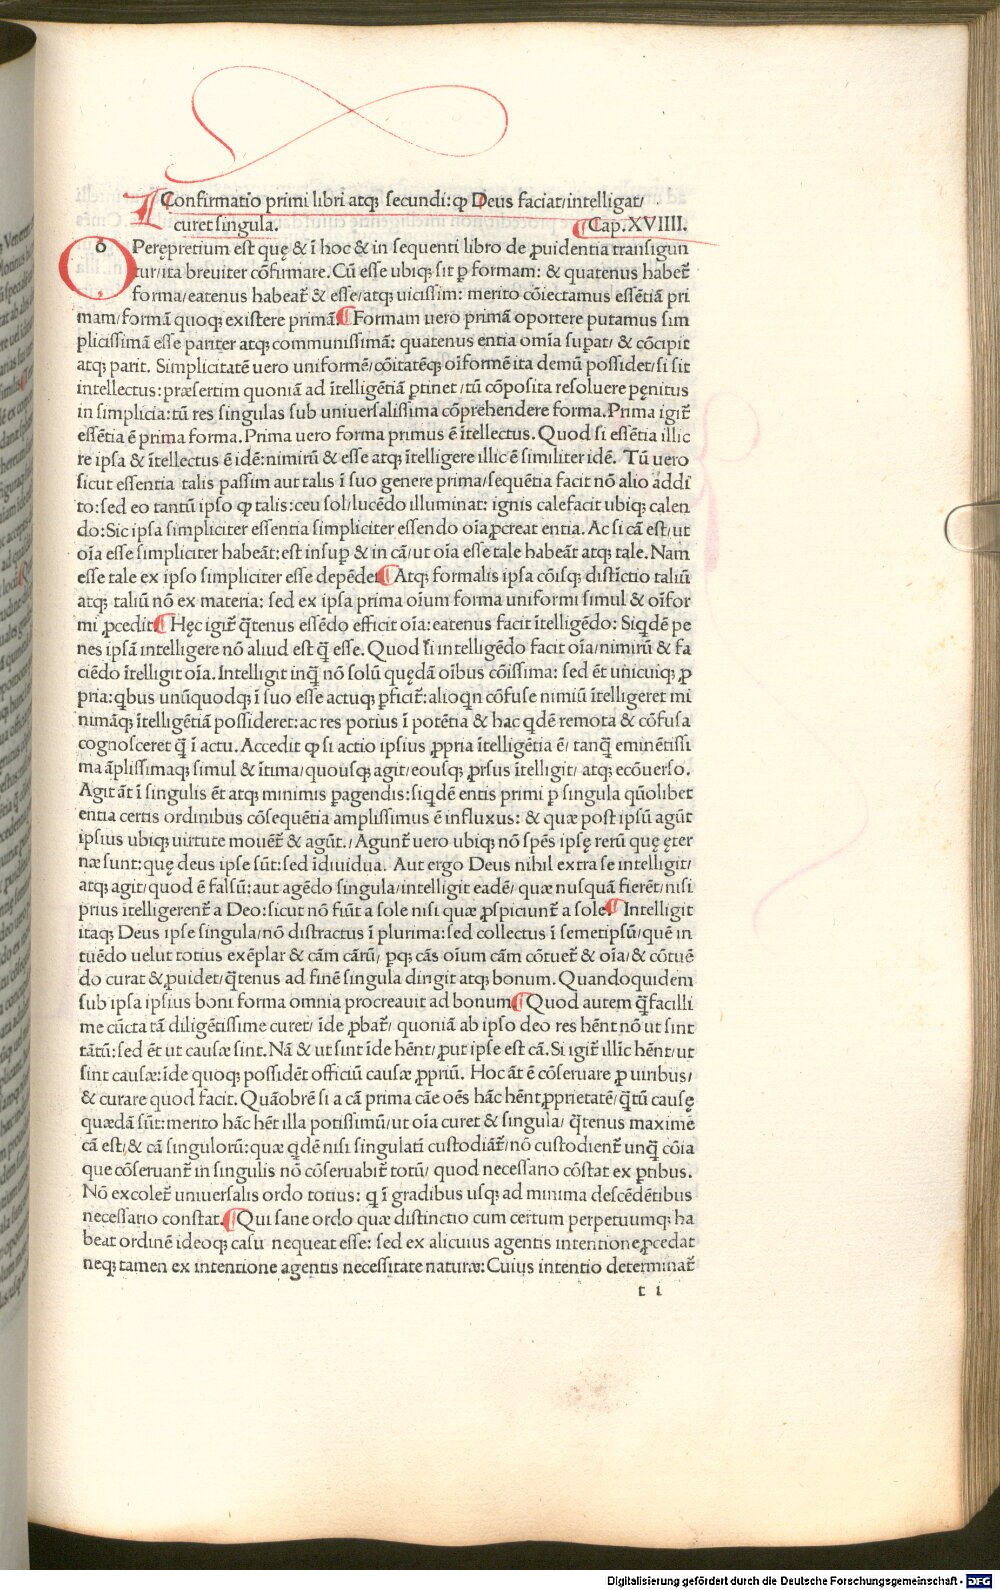 ¶Confirmatio primi libri atq; secundi: ꝙ Deus faciat/intelligat/
curet singula. ¶Cap.XVIIII.
OPerępretium est quę & ī hoc & in sequenti libro de ꝓuidentia transigun
tur/ita breuiter cōfirmare. Cū esse ubiq; sit ꝑ formam: & quatenus habet᷑
forma/eatenus habeat᷑ & esse/atq; uicissim: merito cōiectamus essētiā pri
mam/formā quoq; existere primā. ¶Formam uero primā oportere putamus sim
plicissimā esse pariter atq; communissimā: quatenus entia omīa suꝑat/ & cōcipit
atq; parit. Simplicitatē uero uniformē/cōitatēq; oīformē ita demū possidet/si sit
intellectus: præsertim quoniā ad ītelligētiā ꝑtinet/tū cōposita resoluere pęnitus
in simplicia: tū res singulas sub uniuersalissima cōprehendere forma. Prima igit᷑
essētia ē prima forma. Prima uero forma primus ē ītellectus. Quod si essētia illic
re ipsa & ītellectus ē idē: nimirū & esse atq; ītelligere illic ē similiter idē. Tū uero
sicut essentia talis passim aut talis ī suo genere prima/sequētia facit nō alio addī
to: sed eo tantū ipso ꝙ talis: ceu sol/lucēdo illuminat: ignis calefacit ubiq; calen
do: Sic ipsa simpliciter essentia simpliciter essendo oīa ꝓcreat entia. Ac si cā est/ut
oīa esse simpliciter habeāt: est insuꝑ & in cā/ut oīa esse tale habeāt atq; tale. Nam
esse tale ex ipso simpliciter esse depēdet ¶Atq; formalis ipsa cōisq; distīctio taliū
atq; taliū nō ex materia: sed ex ipsa prima oīum forma uniformi simul & oīfor
mi ꝓcedit ¶Hęc igit᷑ q̄tenus essēdo efficit oīa: eatenus facit ītelligēdo: Siqdē pe
nes ipsā intelligere nō aliud est q̄ esse. Quod si intelligēdo facit oīa/nimirū & fa
ciēdo ītelligit oīa. Intelligit inq̄ nō solū quędā oībus cōissima: sed ēt unicuiq; ꝓ
pria: qbus unūquodq; ī suo esse actuq; ꝑficit᷑: alioqn cōfuse nimiū ītelligeret mi
nimāq; ītelligētiā possideret: ac res potius ī potētia & hac qdē remota & cōfusa
cognosceret q̄ ī actu. Accedit ꝙ si actio ipsius ꝓpria ītelligētia ē/ tanq̄ eminētissi
ma āplissimaq; simul & ītima/quousq; agit/eousq; ꝓrsus ītelligit/ atq; ecōuerso.
Agit āt ī singulis ēt atq; minimis ꝑagendis: siqdē entis primi ꝑ singula quōlibet
entia certis ordinibus cōsequētia amplissimus ē influxus: & quæ post ipsū agūt
ipsius ubiq; uirtute mouēt᷑ & agūt. Agunt᷑ uero ubiq; nō spēs ipsę rerū quę ęter
næ sunt: quę deus ipse sūt: sed īdiuidua. Aut ergo Deus nihil extra se intelligit/
atq; agit/quod ē falsū: aut agēdo singula/intelligit eadē/ quæ nusquā fierēt/nisi
prius ītelligerent᷑ a Deo: sicut nō fiūt a sole nisi quæ ꝓspiciunt᷑ a sole ¶Intelligit
itaq; Deus ipse singula/nō distractus ī plurima: sed collectus ī semetipsū/quē in
tuēdo uelut totius exēplar & cām cārū/ ꝑq; cās oīum cām cōtuet᷑ & oīa/& cōtuē
do curat & ꝓuidet/q̄tenus ad finē singula dirigit atq; bonum. Quandoquidem
sub ipsa ipsius boni forma omnia procreauit ad bonum ¶Quod autem q̄facilli
me cūcta tā diligētissime curet/ īde ꝓbat᷑/ quoniā ab ipso deo res hēnt nō ut sint
tātū: sed ēt ut causæ sint. Nā & ut sint īde hēnt/ ꝓut ipse est cā. Si igit᷑ illīc hēnt/ut
sint causæ: īde quoq; possidēt officiū causæ ꝓpriū. Hoc āt ē cōseruare ꝓ uiribus/
& curare quod facit. Quāobrē si a cā prima cāe oēs hāc hēnt ꝓprietatē/ q̄tū causę
quædā sūt: merito hāc hēt illa potissimū/ut oīa curet & singula/ q̄tenus maxime
cā est/& cā singulorū: quæ qdē nisi singulatī custodiāt᷑/nō custodient᷑ unq̄ cōia
que cōseruant᷑ in singulis nō cōseruabit᷑ totū/ quod necessario cōstat ex ꝑtibus.
Nō excolet᷑ uniuersalis ordo totius: q ī gradibus usq; ad minima descēdētibus
necessario constat. ¶Qui sane ordo quæ distinctio cum certum perpetuumq; ha
beat ordinē ideoq; casu nequeat esse: sed ex alicuius agentis intentione ꝓcedat
neq; tamen ex intentione agentis necessitate naturæ: Cuius intentio determinat᷑
t i
Digitalisierung gefördert durch die Deutsche Forschungsgemeinschaft - DFG